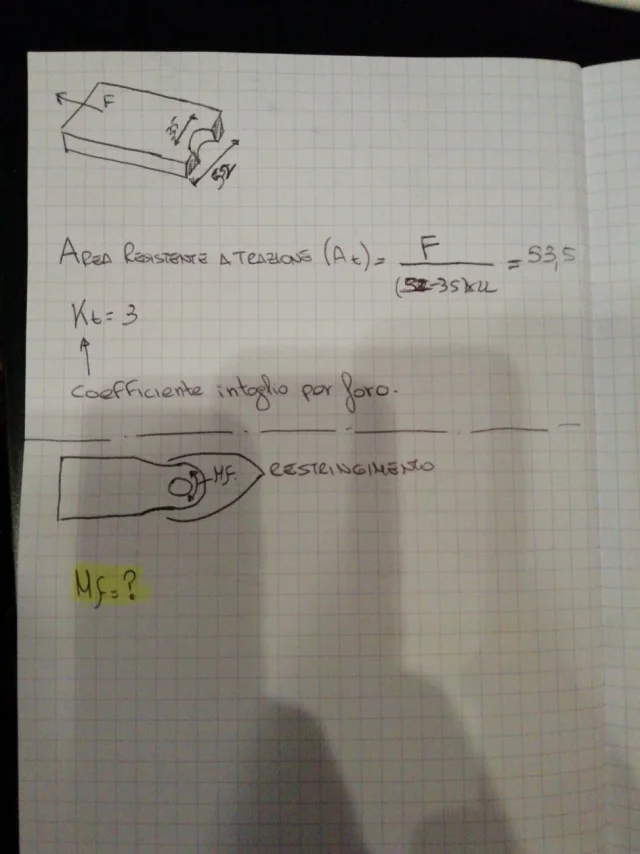 F
35
AREA RESISTENTE A TRAZIONE (At) = F / (52-35)x4 = 53,5
Kt = 3
coefficiente intaglio per foro.
Mf.
RESTRINGIMENTO
Mf = ?